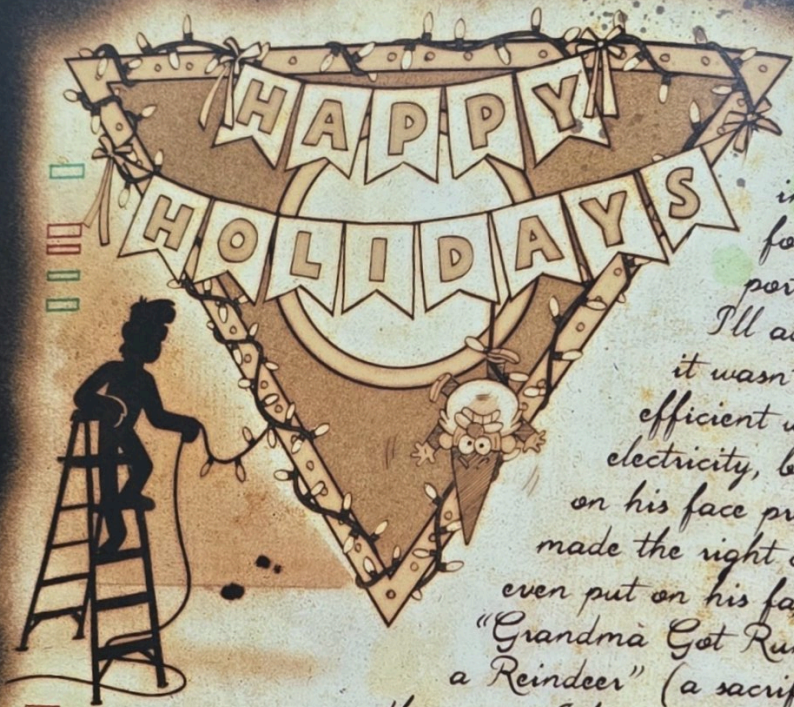 HAPPY
HOLIDAYS
I'll
it wasn'
efficient
electricity,
on his face
made the right
even put on his
"Grandma Got
a Reindeer" (a